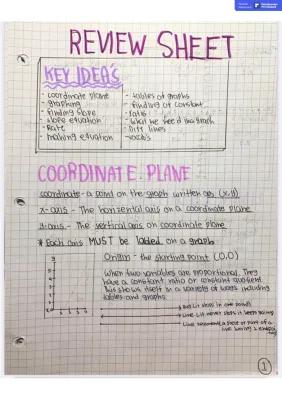 REVIEW SHEET
KEY IDEA'S
- coordinate plane
- graphing
- finding slope
- slope equation
- Rate
- making equation
- tables of graphs
- finding of constant
- ratio
- what we feed in a graph
- Diff lines
- vocabs
COORDINATE PLANE
coordinate - a point on the graph written as (x,y)
x-axis - The horizental axis on a coordinate plane
y-axis - The vertical axis on coordinate plane
* Each axis MUST be labled on a graph
Origin - the starting point (0,0)
When two variables are proportional. They
have a constant ratio or constant quotient
This shows itself in a variety of ways including
tables and graphs.
Line (it never stops it keeps going
Line segment (a piece or part of a
line having 2 endpoints
1